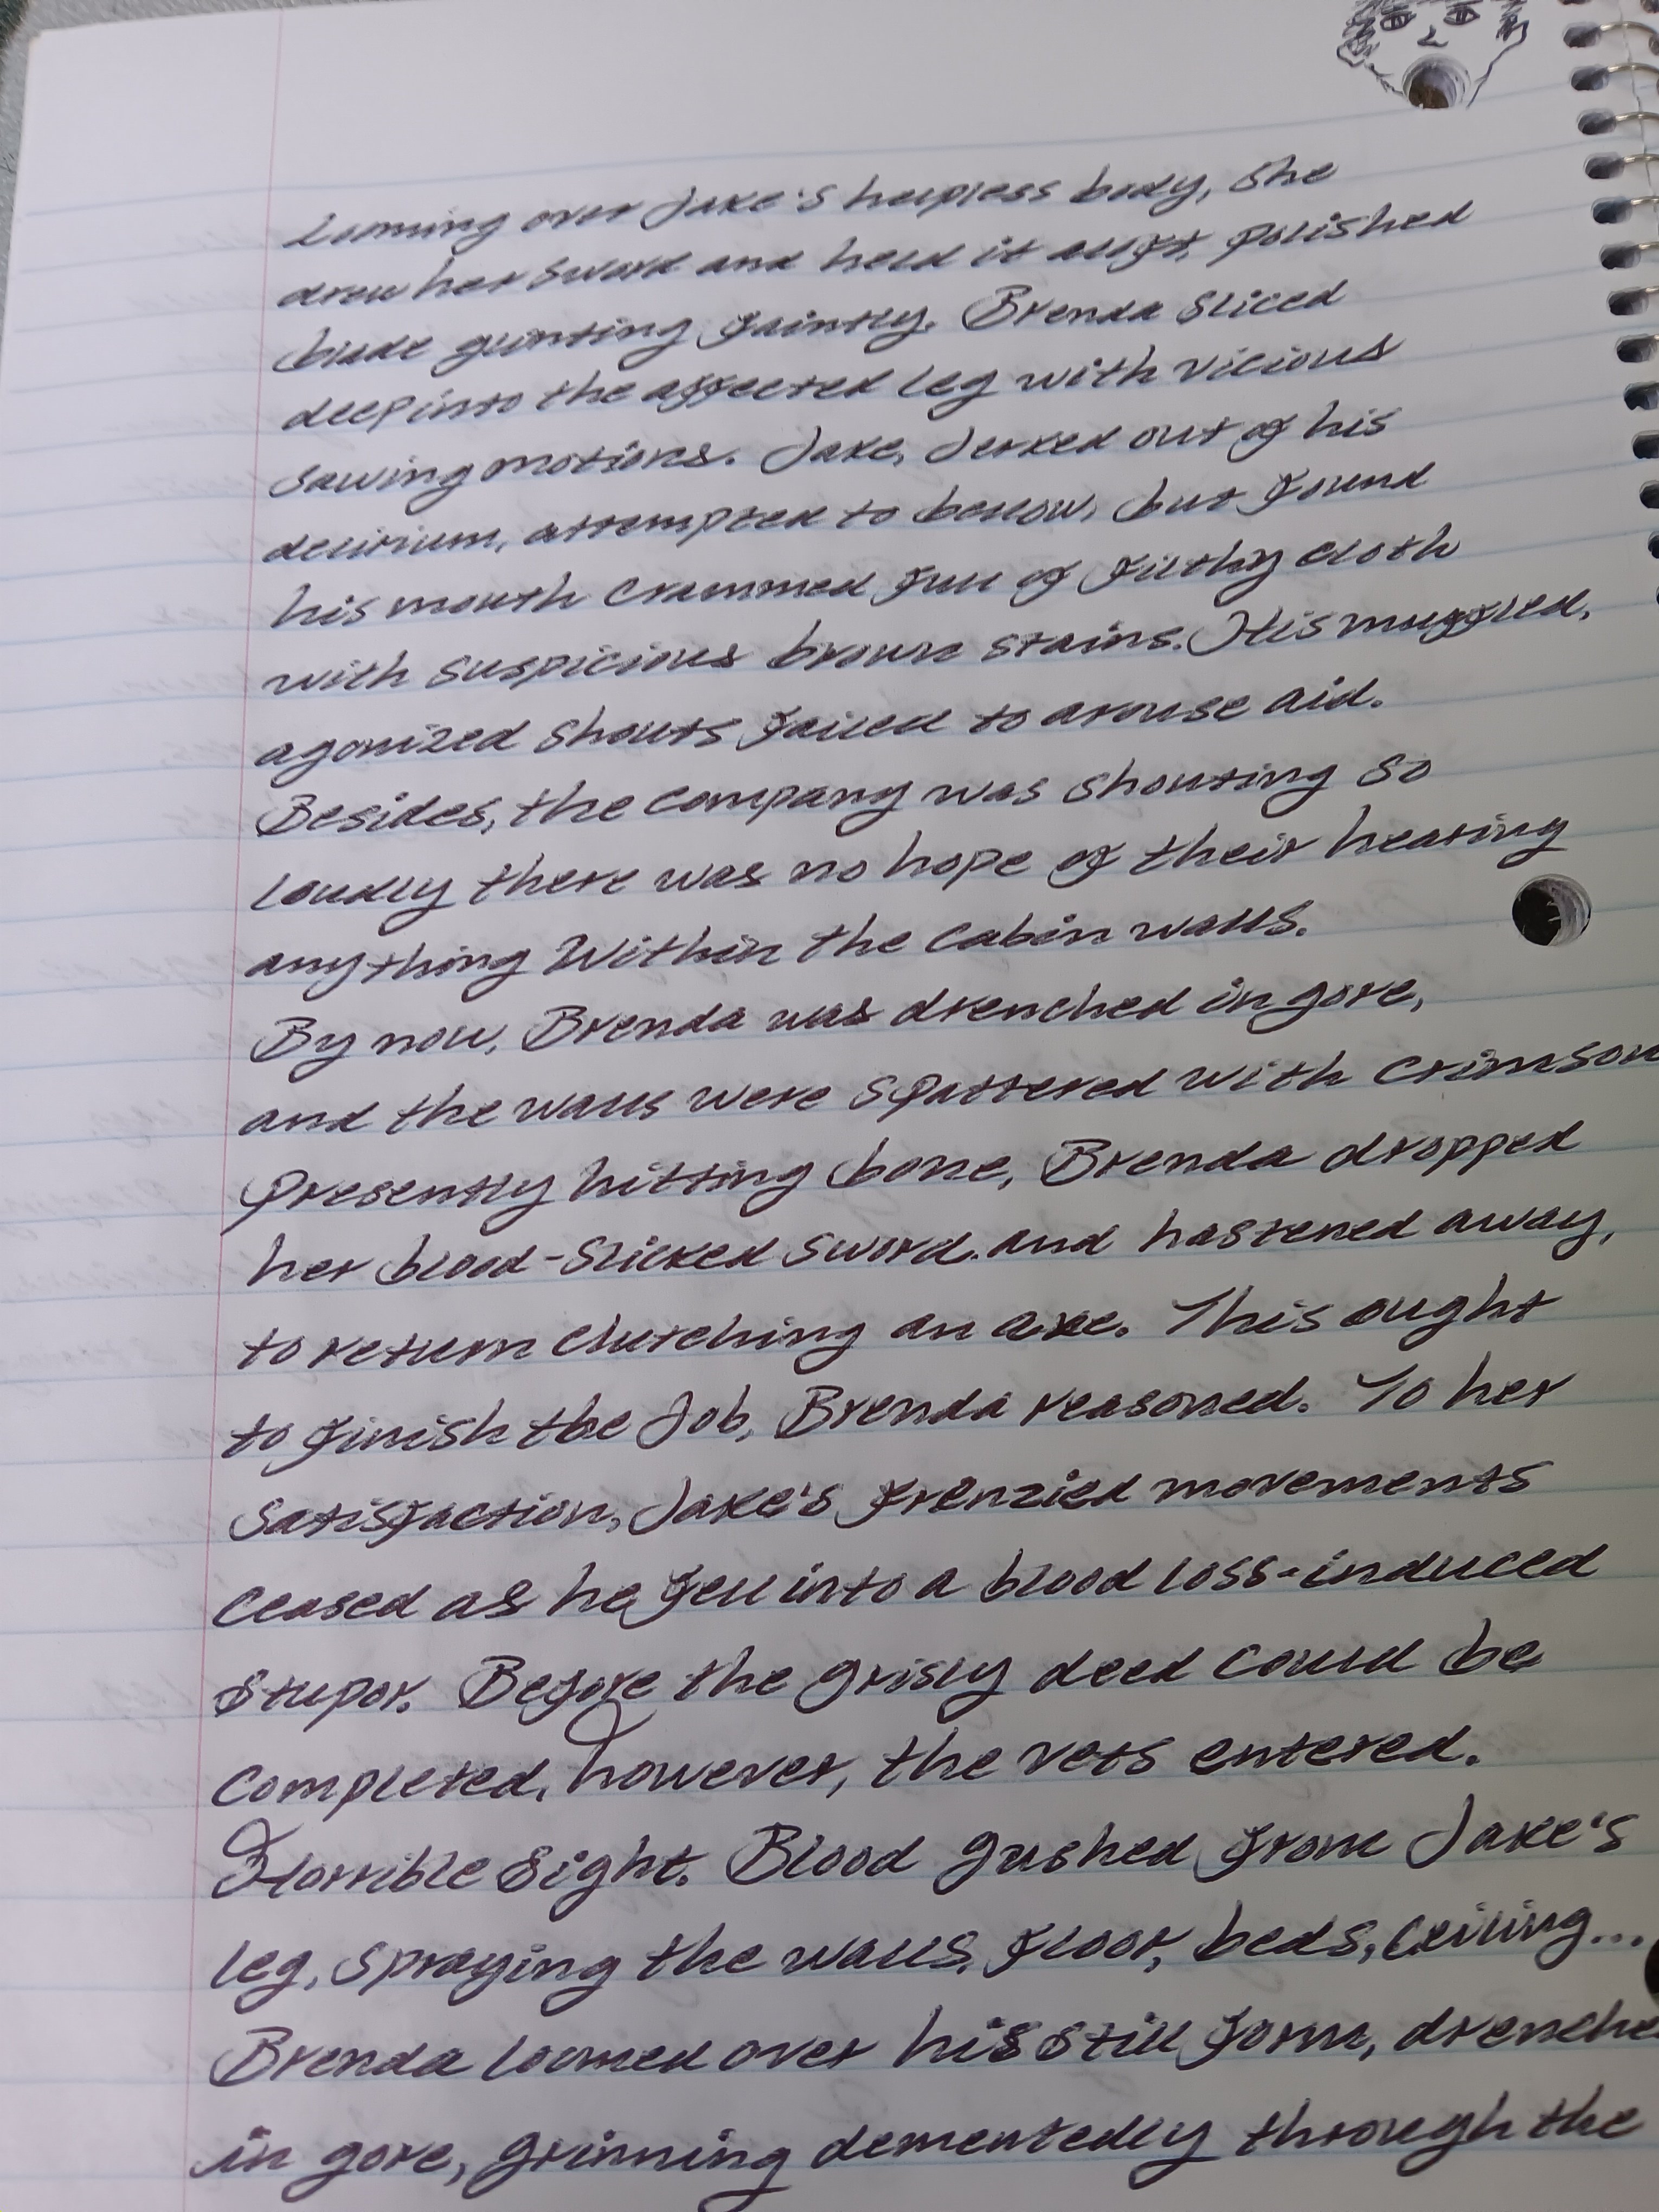 Looming over Jake's helpless body, she
drew her sword and held it aloft, polished
blade glinting faintly. Brenda sliced
deep into the affected leg with vicious
sawing motions. Jake, jerked out of his
delirium, attempted to bellow, but found
his mouth crammed full of filthy cloth
with suspicious brown stains. His muffled,
agonized shouts failed to arouse aid.
Besides, the company was shouting so
loudly there was no hope of their hearing
anything within the cabin walls.
By now, Brenda was drenched in gore,
and the walls were spattered with crimson
Presently hitting bone, Brenda dropped
her blood-slicked sword. and hastened away,
to return clutching an axe. This ought
to finish the job, Brenda reasoned. To her
satisfaction, Jake's frenzied movements
ceased as he fell into a blood loss-induced
stupor. Before the grisly deed could be
completed, however, the vets entered.
Horrible sight. Blood gushed from Jake's
leg, spraying the walls, floor, beds, ceiling...
Brenda loomed over his still form, drenche
in gore, grinning dementedly through the